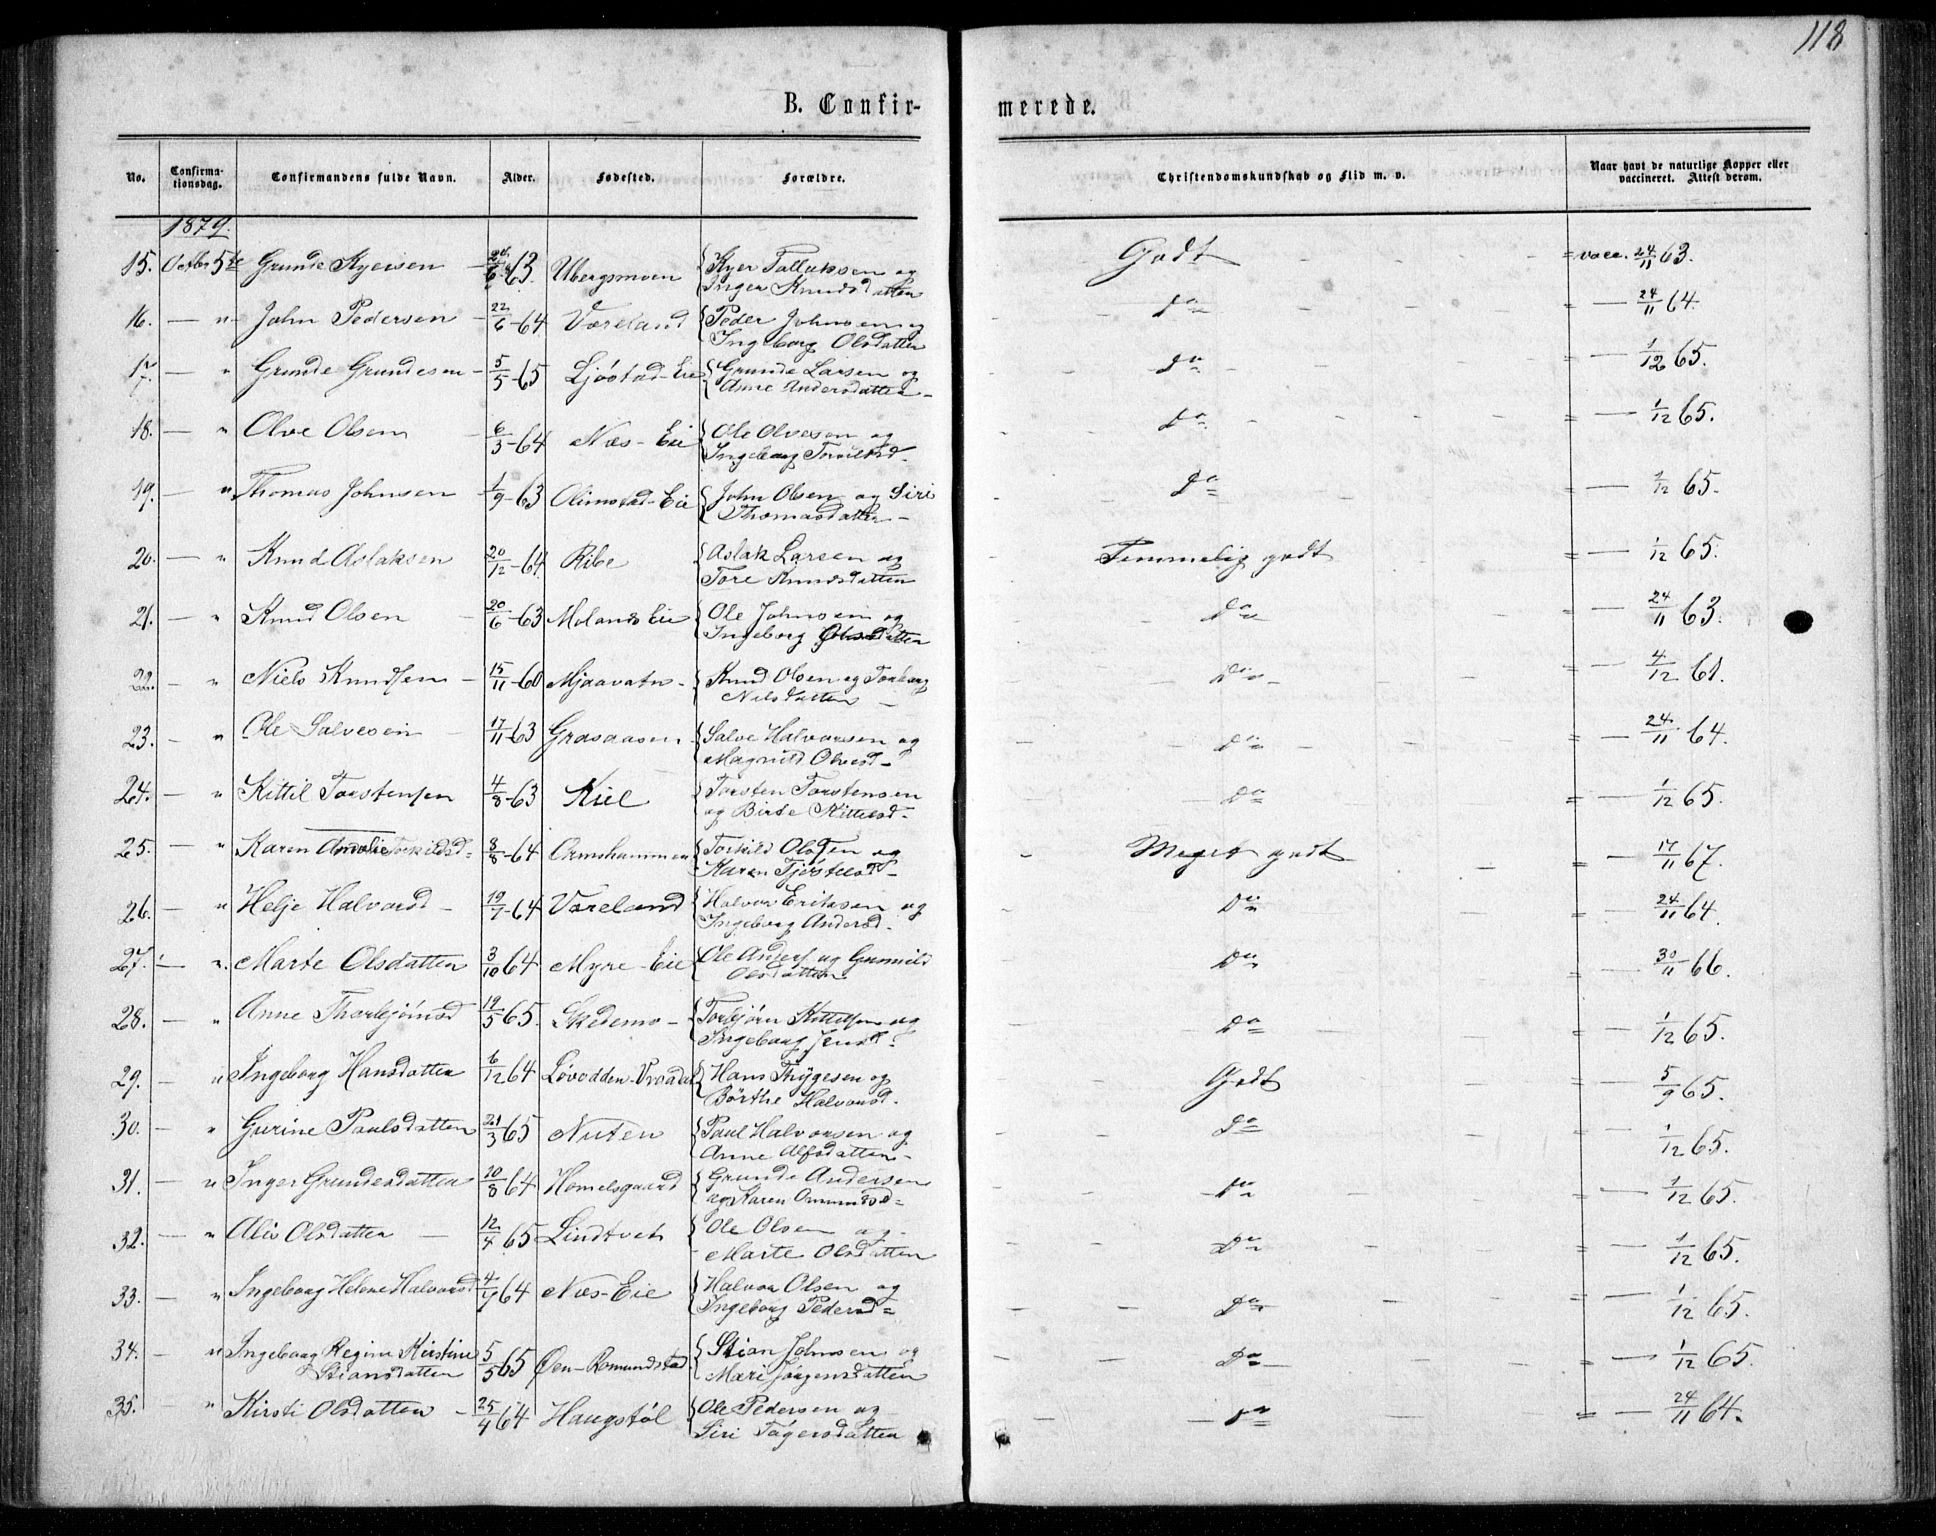 118
B. Confir-
merede.
No. Confirma-tionsdag. Confirmandens fulde Navn. Alder. Fødested. Forældre. Christendomskundskab og Flid m. v. Naar havt de naturlige Kopper eller vaccineret. Attest derom.
1879.
15. Octbr 5te Grunde Kjersen 63. Ubergsmoen Kjer Tallaksen og Inger Knudsdatter Godt = vacc. 24/11 63.
16. — " John Pedersen - 22/6-64 Væreland Peder Johnsen og Ingeborg Olsdatter Do = — 24/11 64.
17. — " Grunde Grundesen - 5/5-65 Ljøstad-Eie Grunde Larsen og Anne Andersdatter - Do = — 1/12 65.
18. — " Olve Olsen - 6/3-64 Næs-Eie Ole Olvesen og Ingeborg Torkilsd. Do = — 1/12 65.
19. — " Thomas Johnsen - 1/9-63 Olimstad-Eie John Olsen og Siri Thomasdatter - Do = — 1/12 65.
20. — " Knud Aslaksen 20/12-64 Ribe Aslak Larsen og Tore Knudsdatter Temmelig godt = — 1/12 65.
21. — " Knud Olsen - 20/6-63 Molands Eie Ole Johnsen og Ingeborg Olsdatter Do = — 24/11 63.
22. — " Niels Knudsen - 15/11-60 Mjaavatn - Knud Olsen og Torborg Nilsdatter - Do = — 4/12 61.
23. — " Ole Salvesen - 17/11-63 Grasaasen - Salve Halvorsen og Magnild Olvesd - Do = — 24/11 64.
24. — " Kittil Torstensen 4/8-63 Kiel Torsten Torstensen og Birte Kittelsd - Do = — 1/12 65.
25. — " Karen Amalie Torkildsd - 8/8-64 Ormshammen Torkild Olsen og Karen Tjøstelsd - Meget godt = — 17/11 67.
26. — " Helje Halvorsd - 19/7-64 Væreland Halvor Eriksen og Ingeborg Andersd. Do = — 24/11 64.
27. — " Marte Olsdatter 3/10 64 Myre-Eie Ole Anders og Gunnild Olsdatter Do — 30/11 66.
28. — " Anne Thorbjørnsd 19/5 65. Skedsmo - Torbjørn Kittelsen og Ingeborg Jensd. Do — 1/12 65.
29. — " Ingeborg Hansdatter 6/12 64 Løvodden-Vraadal Hans Thygesen og Børthe Halvorsd. Godt — 5/9 65.
30. — " Gurine Paulsdatter 21/3 65 Nuten Paul Halvorsen og Anne Alfsdatter - Do 1/12 65.
31. — " Inger Grundesdatter 20/8 64 Homelsgaard Grunde Andersen og Karen Ommundsd - Do — 1/12 65.
32. — " Alis Olsdatter - 12/4 65 Lindtveit Ole Olsen og Marte Olsdatter Do — 1/12 65.
33. — " Ingeborg Helene Halvorsd 4/9 64 Næs-Eie Halvor Olsen og Ingeborg Pedersd = Do — 1/12 65.
34. — " Ingeborg Regine Kirstine Stiansdatter 5/5 65 Øen-Romundstad Stian Johnsen og Mari Jørgensdatter Do — 1/12 65.
35. — " Kirsti Olsdatter - 25/4 64 Haugstøl Ole Pedersen og Siri Tagersdatter Do = — 24/11 64.